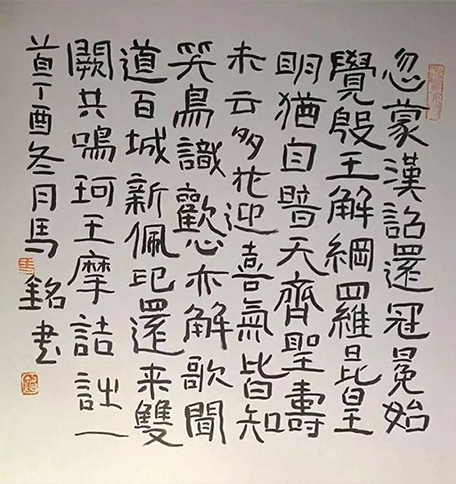 忽蒙漢詔還冠冕始
覺殷王解綱羅日比皇
明猶自暗天齊聖壽
未云多花迎喜氣皆知
笑鳥識歡心亦解歌聞
道百城新佩印還来雙
闕共鳴珂王摩詰詩一
首丁酉冬月馬銘书